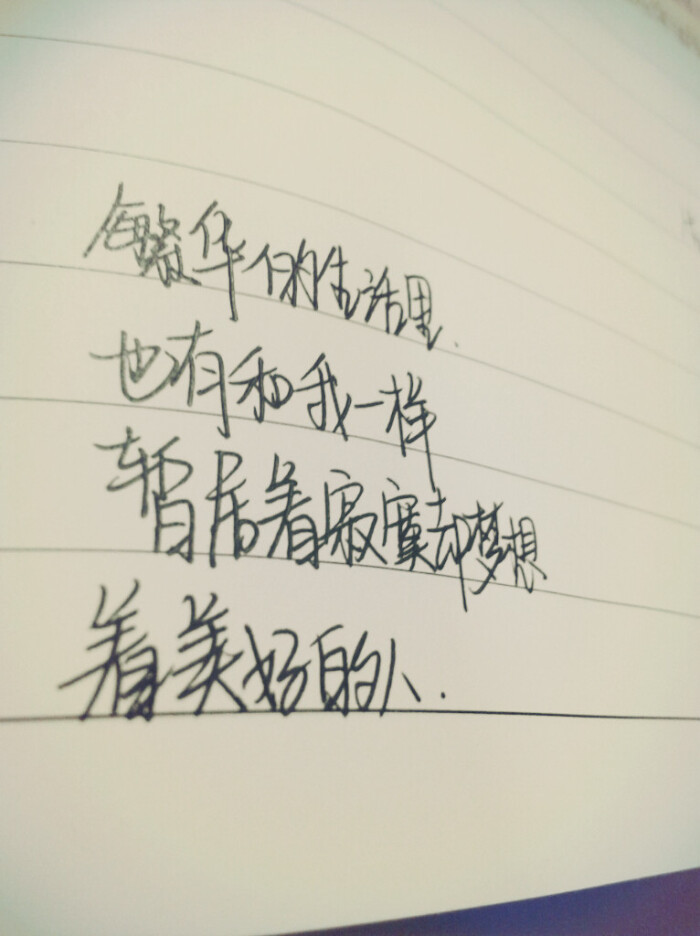 繁华的生活里.
也有和我一样
暂居着寂寞却梦想
着美好的人.